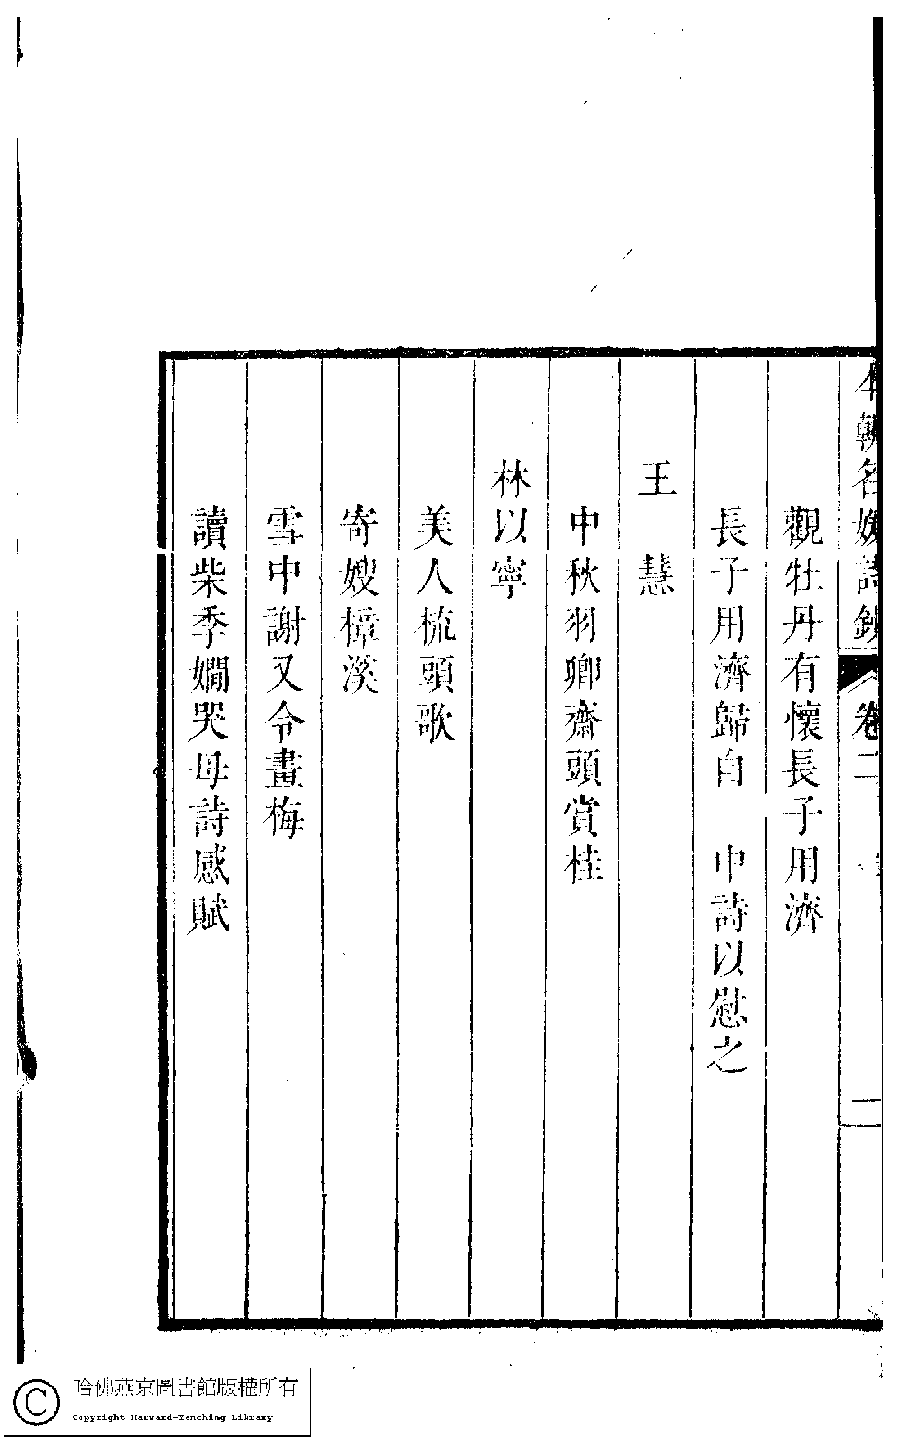 本朝名媛詩鈔 卷二
觀牡丹有懷長子用濟
長子用濟歸自 中詩以慰之
王 慧
中秋羽卿齋頭賞桂
林以寧
美人梳頭歌
寄嫂樟溪
雪中謝又令畫梅
讀柴季嫻哭母詩感賦
哈佛燕京圖書館版權所有
Copyright Harvard-Yenching Library